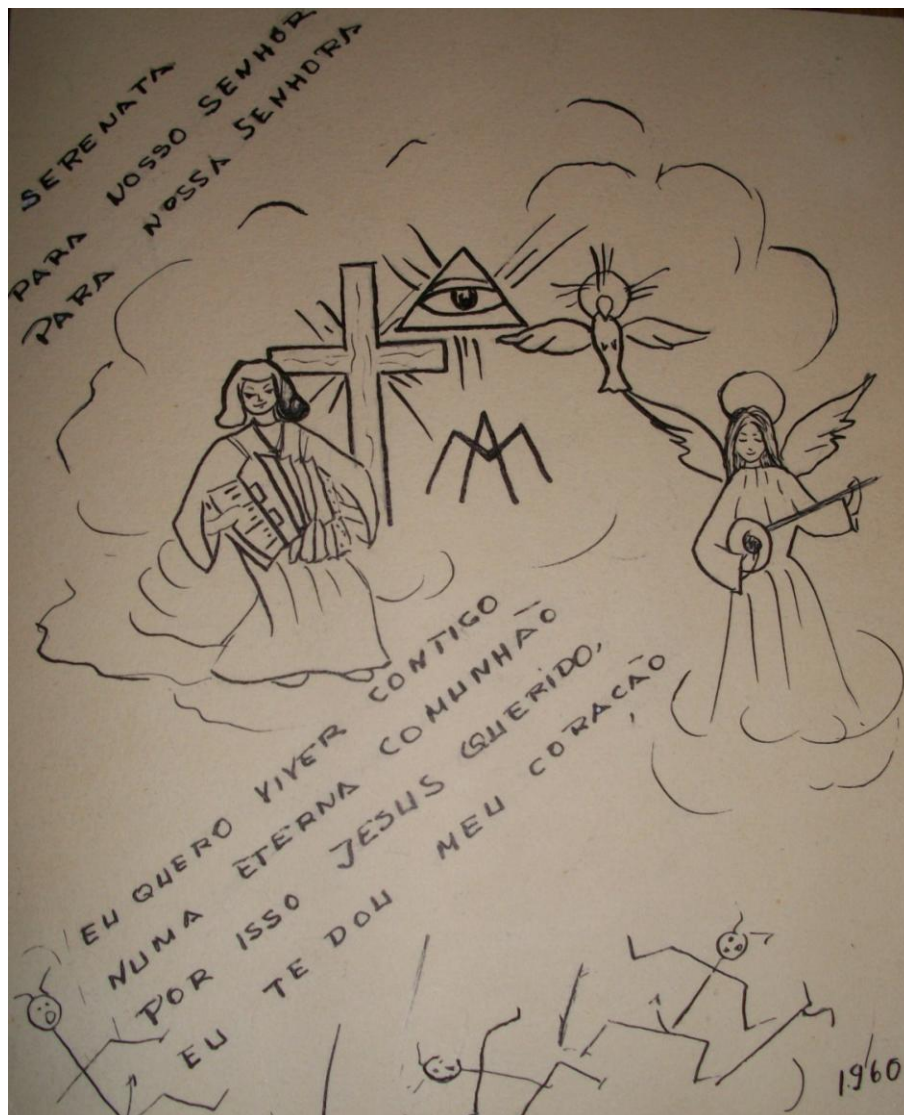 SERENATA
PARA NOSSO SENHOR
PARA NOSSA SENHORA
AM
EU QUERO VIVER CONTIGO
NUMA ETERNA COMUNHÃO
POR ISSO JESUS QUERIDO,
EU TE DOU MEU CORAÇÃO
1960